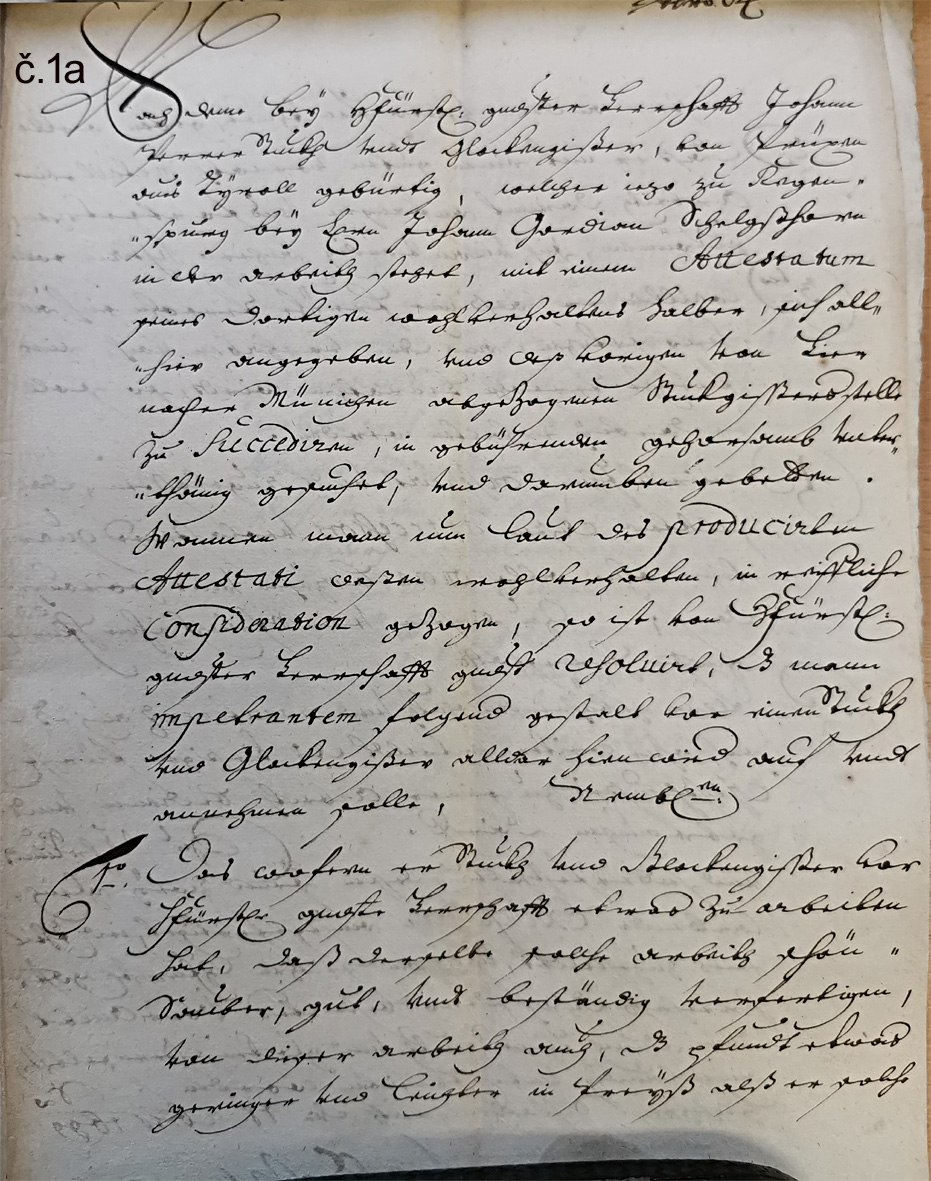 č.1a
Nach deme bey Hfürstl: gnedigster Herrschafft Johann
Stuckh vnndt Glockengießer, von
aus Tÿroll gebürtig, welcher iezo zu Regen-
-spurg beÿ Hrn Johann Gordian Schelgshorn
in der arbeith stehet, mit einem Attestatum
seines dortigen wohlverhaltens halber, sich all-
-hier angegeben, vnd des vorigen von hier
nacher München abgezogenen Stuckgießersstelle
zu Succediren, in gebührenden gehorsamb vnter-
-thänig gesuchet, vnd darumben gebetten.
Wannen mann nun laut des producirten
Attestati dessen wohlverhalten, in reiffliche
Consideration gezogen, so ist von Hfürstl:
gnedigster Herrschafft gnedigst resoluirt, dz mann
impetrantem folgend gestalt vor einen Stuckh
vnd Glockengießer alldar hienwied auf vnndt
annehmen solle, Nembl:en:
1o. Das wofern er Stuckh vnd Glockengießer vor
Hfürstl gnedigste Herrschafft etwas zu arbeiten
hat, daß derselbe solche arbeith schön
Sauber, gut, vnndt beständig verfertigen,
von dieser arbeith auch, dz pfundt etwas
geringer vnd leichter in Preÿß alß er solche